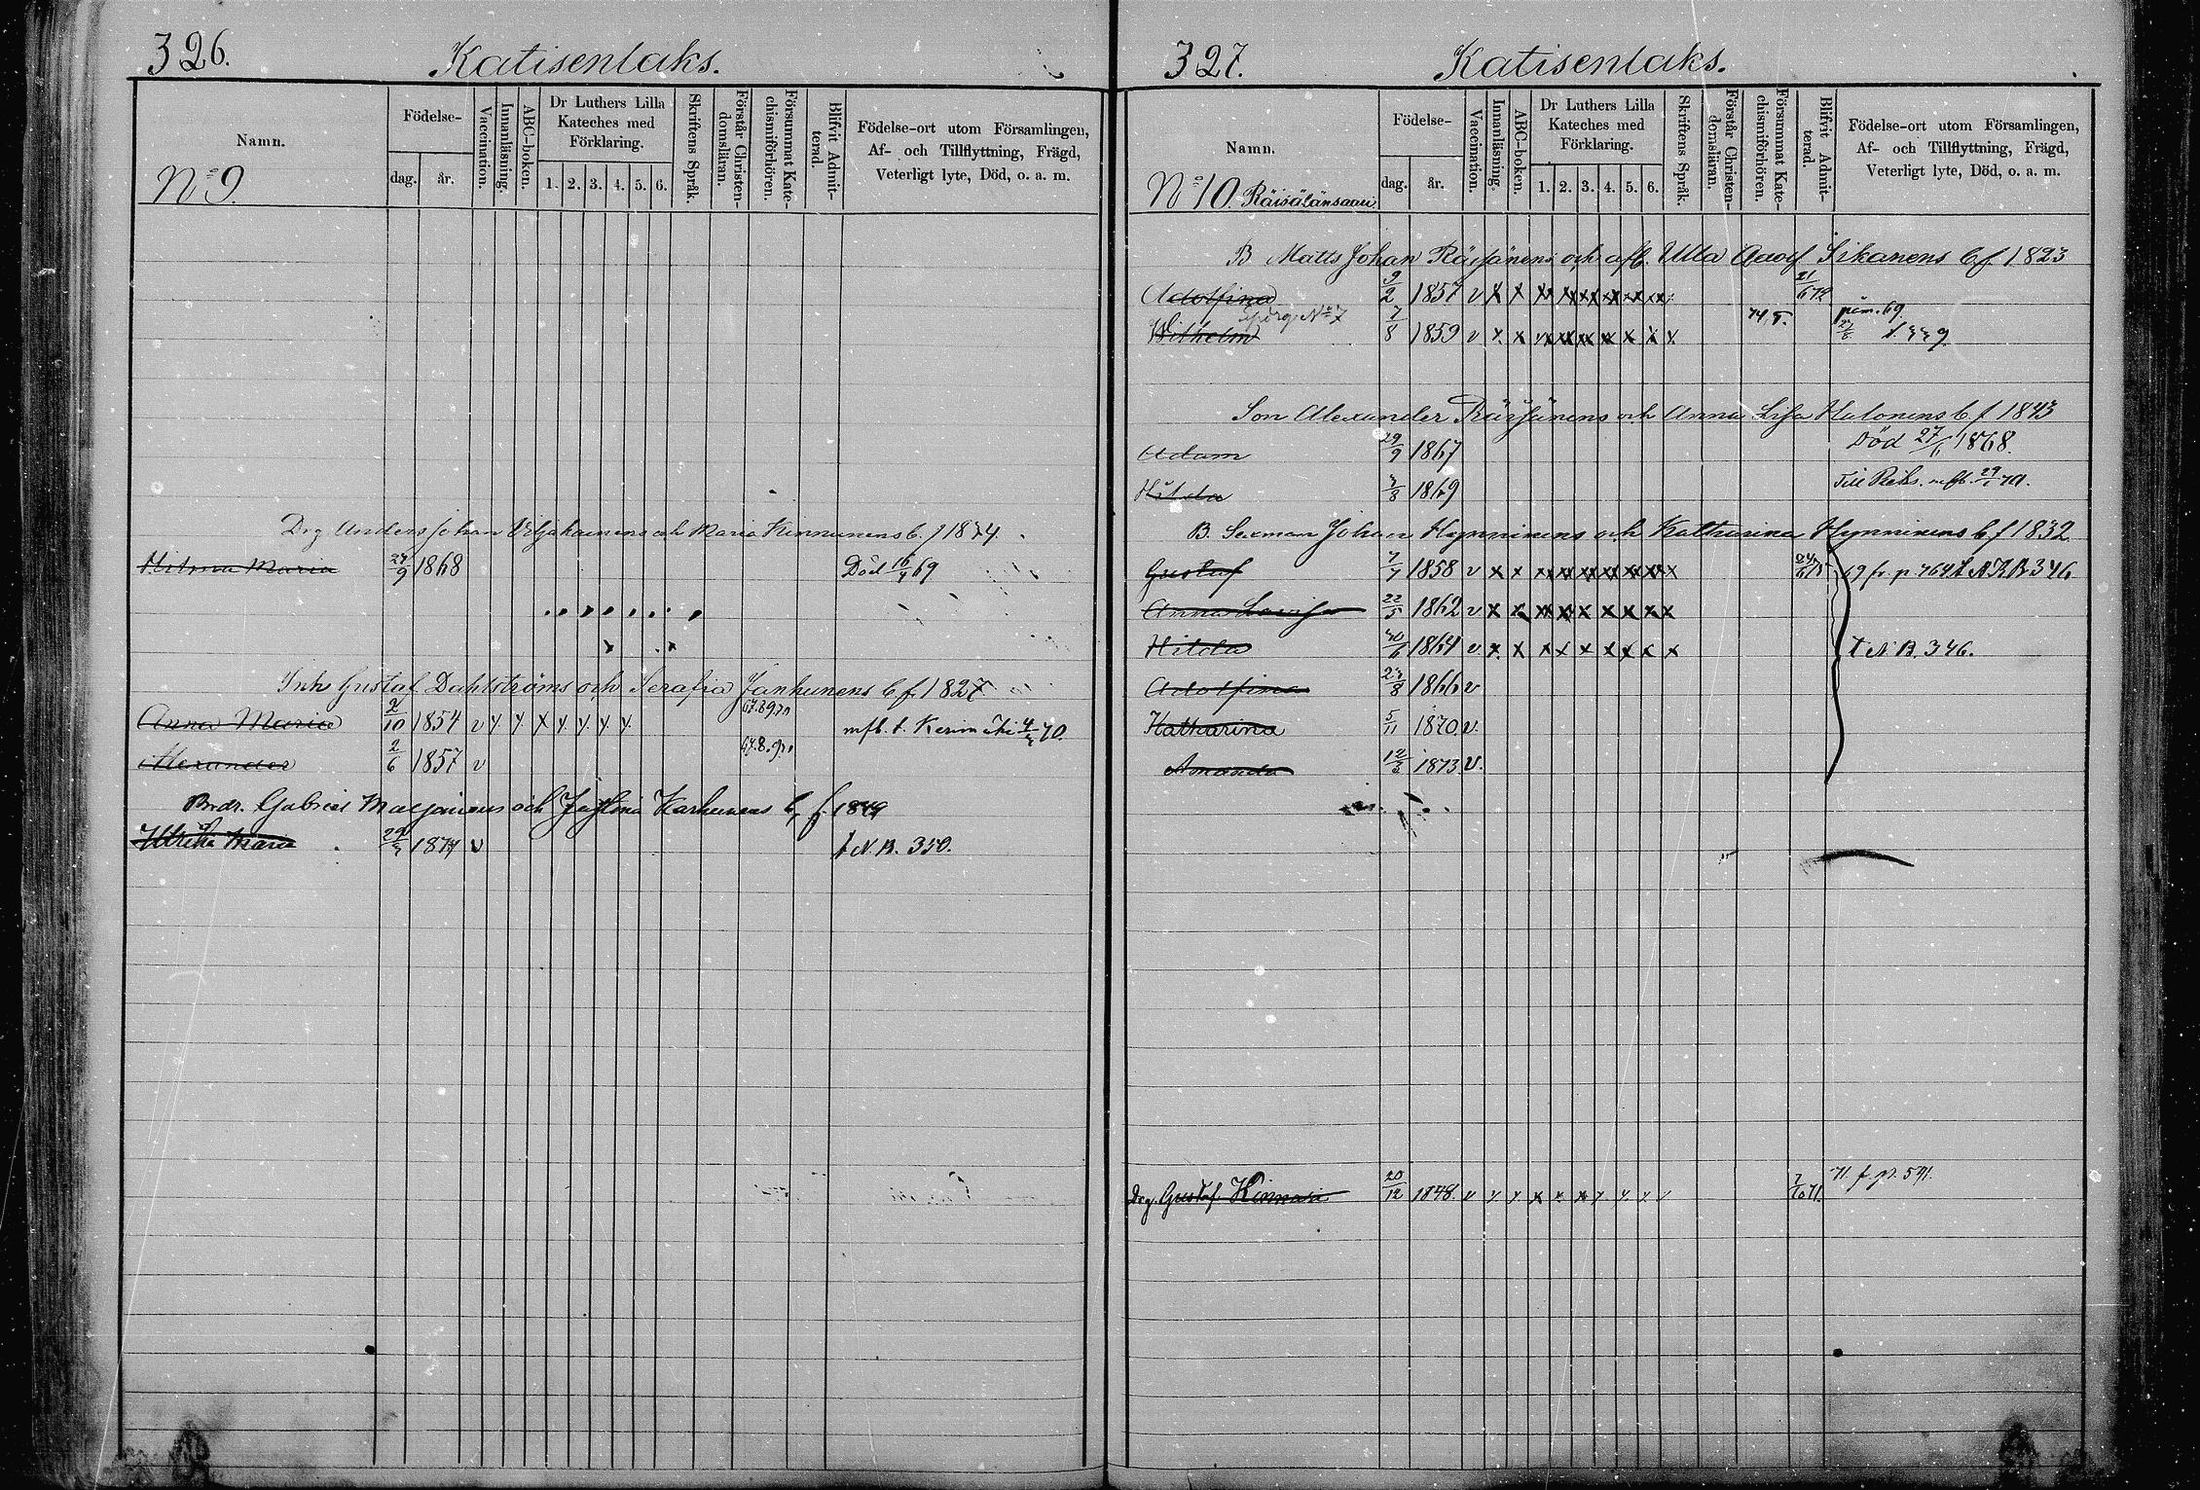 326.
Katisenlaks.
Namn.
Födelse-
dag.
år.
Vaccination.
Innanläsning.
ABC-boken.
Dr Luthers Lilla
Kateches med
Förklaring.
1. 2. 3. 4. 5. 6.
Skriftens Språk.
Förstår Christen-
domsläran.
Försummat Kate-
chismiförhören.
Blifvit Admit-
terad.
Födelse-ort utom Församlingen,
Af- och Tillflyttning, Frägd,
Veterligt lyte, Död, o. a. m.
No 9.
Drg Anders Johan och Maria Kinnunens b. f 1874.
Hilma Maria 9 1868 Död 69
Inh Gustaf Dahlströms och Serafia Janhunens b f. 1827
Anna Maria 2/10 1854 v x x x x x x x mfb. t. Kerimäki 70.
Alexander 2/6 1857 v
Gabriel och Karhunens b. f.
Ulrika Maria 1874 v t N. B. 350.
327.
Katisenlaks.
Namn.
Födelse-
dag.
år.
Vaccination.
Innanläsning.
ABC-boken.
Dr Luthers Lilla
Kateches med
Förklaring.
1. 2. 3. 4. 5. 6.
Skriftens Språk.
Förstår Christen-
domsläran.
Försummat Kate-
chismiförhören.
Blifvit Admit-
terad.
Födelse-ort utom Församlingen,
Af- och Tillflyttning, Frägd,
Veterligt lyte, Död, o. a. m.
No 10. Räisälänsaari
B Matts Johan Räisänens och afl. Ulla Sikanens b f. 1823
Adolfina 9/2 1857 v x x
Wilhelm 7/8 1859 v x x
Son Alexander Räisänens och Anna Lisa Halonens b f 1843
Adam 29/9 1867 Död 27 1868.
Hilda 8 1869 Till 70.
B. Johan Hynninens och Katharina Hynninens b f 1832
Gustaf 7/7 1858 v x x 69 fr. p 764 t N. B 346
Anna Lovisa 22/5 1862 v x x
Hilda 1864 v x x t N B. 346.
Adolfina 8 1866 v
Katharina 5/11 1870 v.
Amanda 12/3 1873 v.
Drg. Gustaf Kinnari 20/12 1848 v 71. 71 f. p. 541.